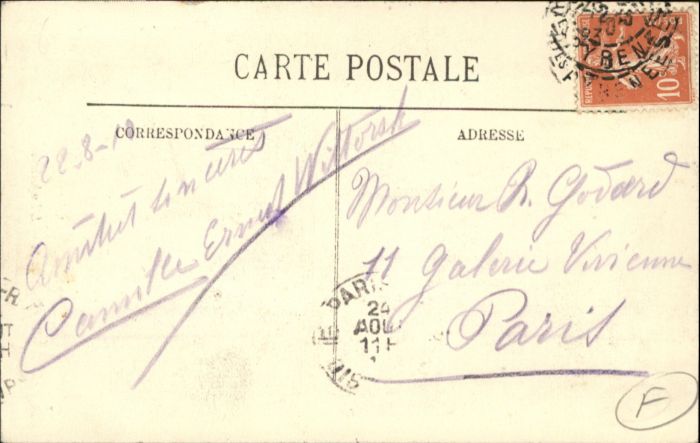 CARTE POSTALE
CORRESPONDANCE
ADRESSE
22-8-10
Amitiés sincères
Camille Ernest Wittorsk
Monsieur R. Godard
11 Galerie Vivienne
Paris
PARIS
24
AOU
11H
10
F